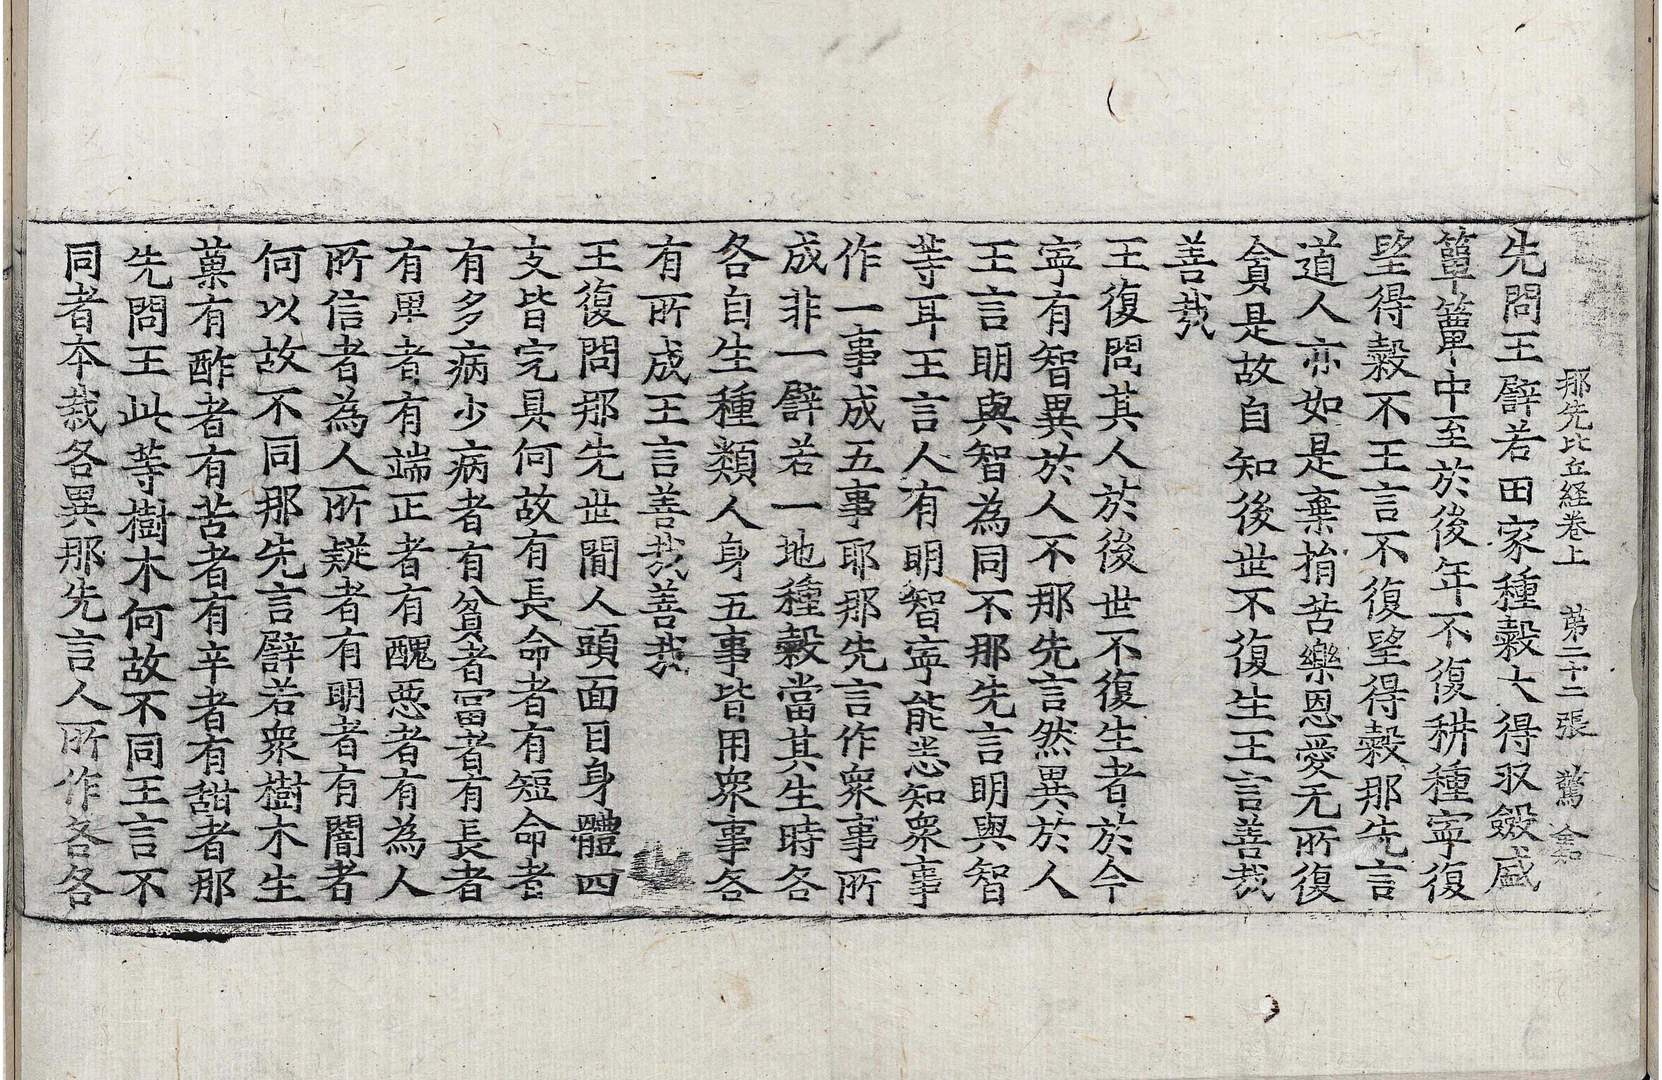 那先比丘経卷上　第二十二張　驚
先問王譬若田家種糓大得収斂盛
簞簞中至於後年不復耕種寧復
望得糓不王言不復望得糓那先言
道人亦如是棄捐苦樂恩愛无所復
貪是故自知後世不復生王言善哉
善哉
王復問其人於後世不復生者於今
寧有智異於人不那先言然異於人
王言明與智為同不那先言明與智
等耳王言人有明智寧能悉知衆事
作一事成五事耶那先言作衆事所
成非一譬若一地種糓當其生時各
各自生種類人身五事皆用衆事各
有所成王言善哉善哉
王復問那先世閒人頭面目身體四
支皆完具何故有長命者有短命者
有多病少病者有貧者富者有長者
有卑者有端正者有醜惡者有為人
所信者為人所疑者有明者有闇者
何以故不同那先言譬若衆樹木生
菓有酢者有苦者有辛者有甜者那
先問王此等樹木何故不同王言不
同者本栽各異那先言人所作各各